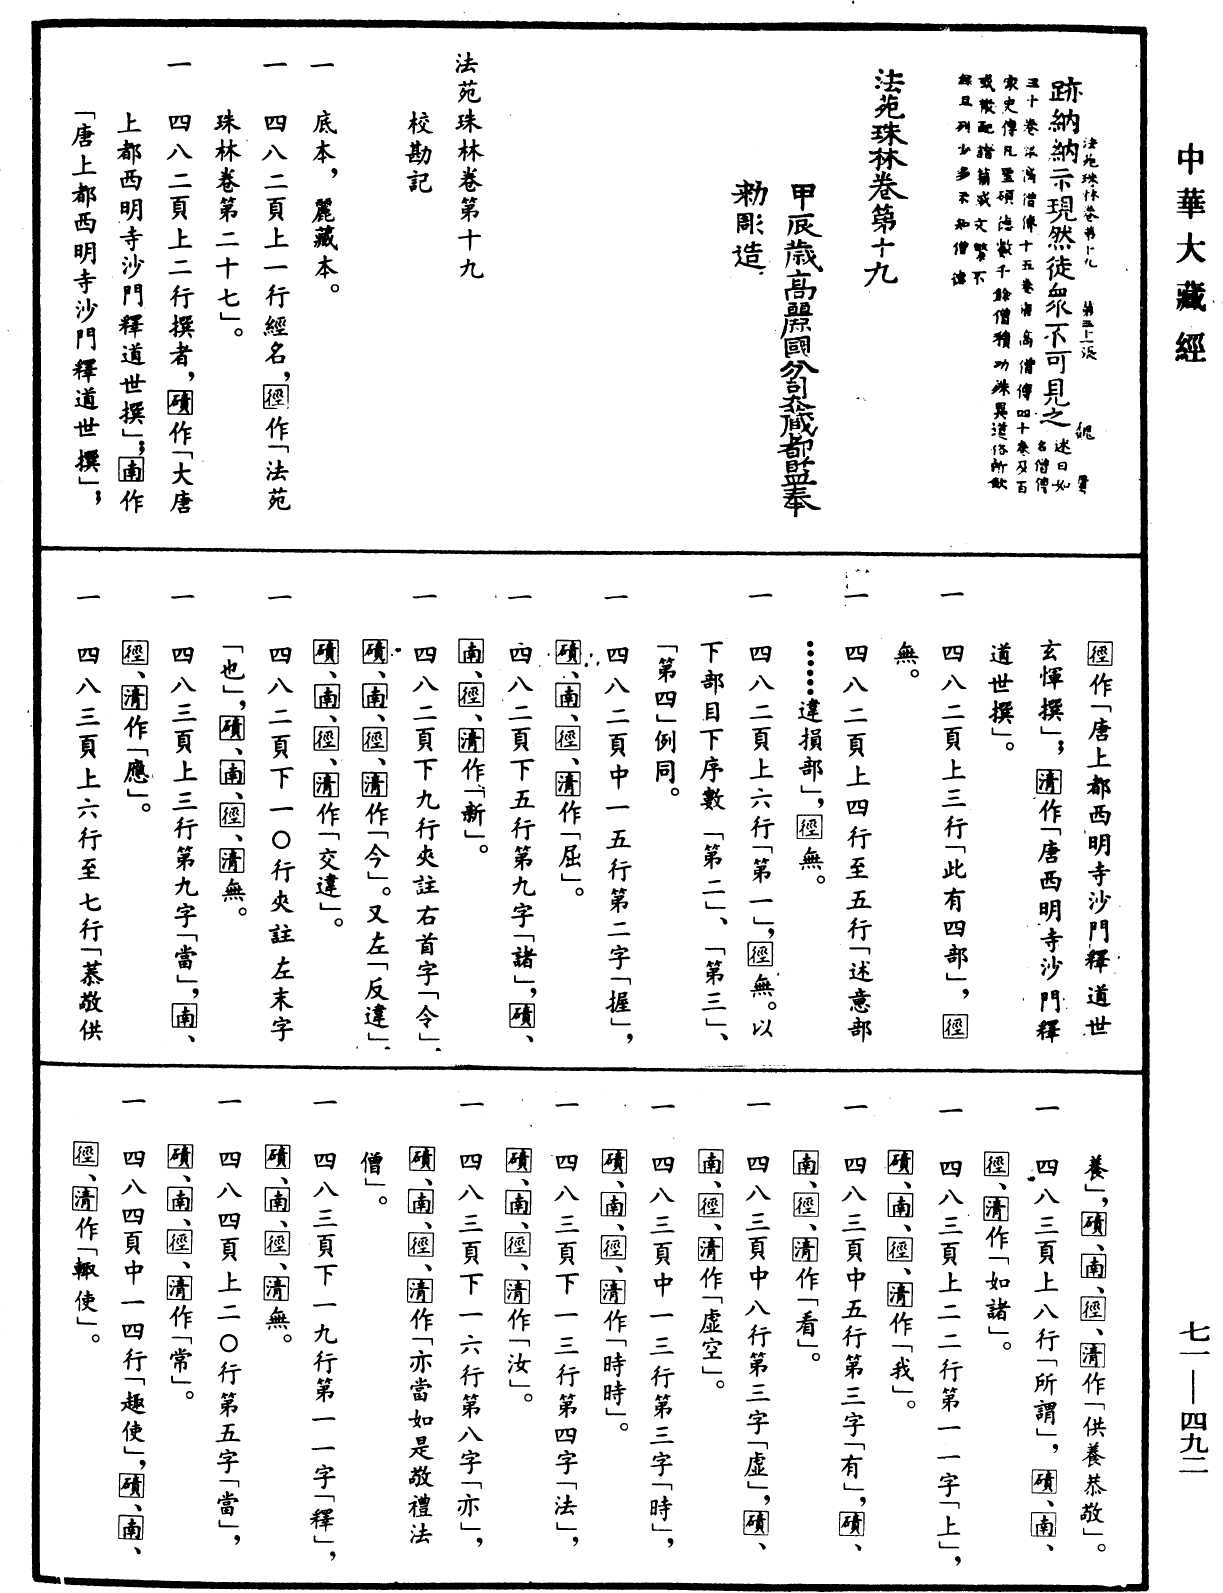 中華大藏經
法苑珠林卷第十九
跡納納示現然徒衆不可見之
法苑珠林卷第十九
甲辰歲高麗國分司大藏都監奉
勑彫造
法苑珠林卷第十九
校勘記
一 底本，麗藏本。
一 四八二頁上一行經名，徑作「法苑
珠林卷第二十七」。
一 四八二頁上二行撰者，磧作「大唐
上都西明寺沙門釋道世撰」；南作
「唐上都西明寺沙門釋道世撰」；
徑作「唐上都西明寺沙門釋道世
玄惲撰」；清作「唐西明寺沙門釋
道世撰」。
一 四八二頁上三行「此有四部」，徑
無。
一 四八二頁上四行至五行「述意部
……違損部」，徑無。
一 四八二頁上六行「第一」，徑無。以
下部目下序數「第二」、「第三」、
「第四」例同。
一 四八二頁中一五行第二字「握」，
磧、南、徑、清作「屈」。
一 四八二頁下五行第九字「諸」，磧、
南、徑、清作「新」。
一 四八二頁下九行夾註右首字「令」，
磧、南、徑、清作「今」。又左「反違」，
磧、南、徑、清作「交違」。
一 四八二頁下一〇行夾註左末字
「也」，磧、南、徑、清無。
一 四八三頁上三行第九字「當」，南、
徑、清作「應」。
一 四八三頁上六行至七行「恭敬供
養」，磧、南、徑、清作「供養恭敬」。
一 四八三頁上八行「所謂」，磧、南、
徑、清作「如諸」。
一 四八三頁上二二行第一一字「上」，
磧、南、徑、清作「我」。
一 四八三頁中五行第三字「有」，磧、
南、徑、清作「看」。
一 四八三頁中八行第三字「虛」，磧、
南、徑、清作「虛空」。
一 四八三頁中一三行第三字「時」，
磧、南、徑、清作「時時」。
一 四八三頁下一三行第四字「法」，
磧、南、徑、清作「汝」。
一 四八三頁下一六行第八字「亦」，
磧、南、徑、清作「亦當如是敬禮法
僧」。
一 四八三頁下一九行第一一字「釋」，
磧、南、徑、清無。
一 四八四頁上二〇行第五字「當」，
磧、南、徑、清作「常」。
一 四八四頁中一四行「趣使」，磧、南、
徑、清作「輙使」。
七一——四九二